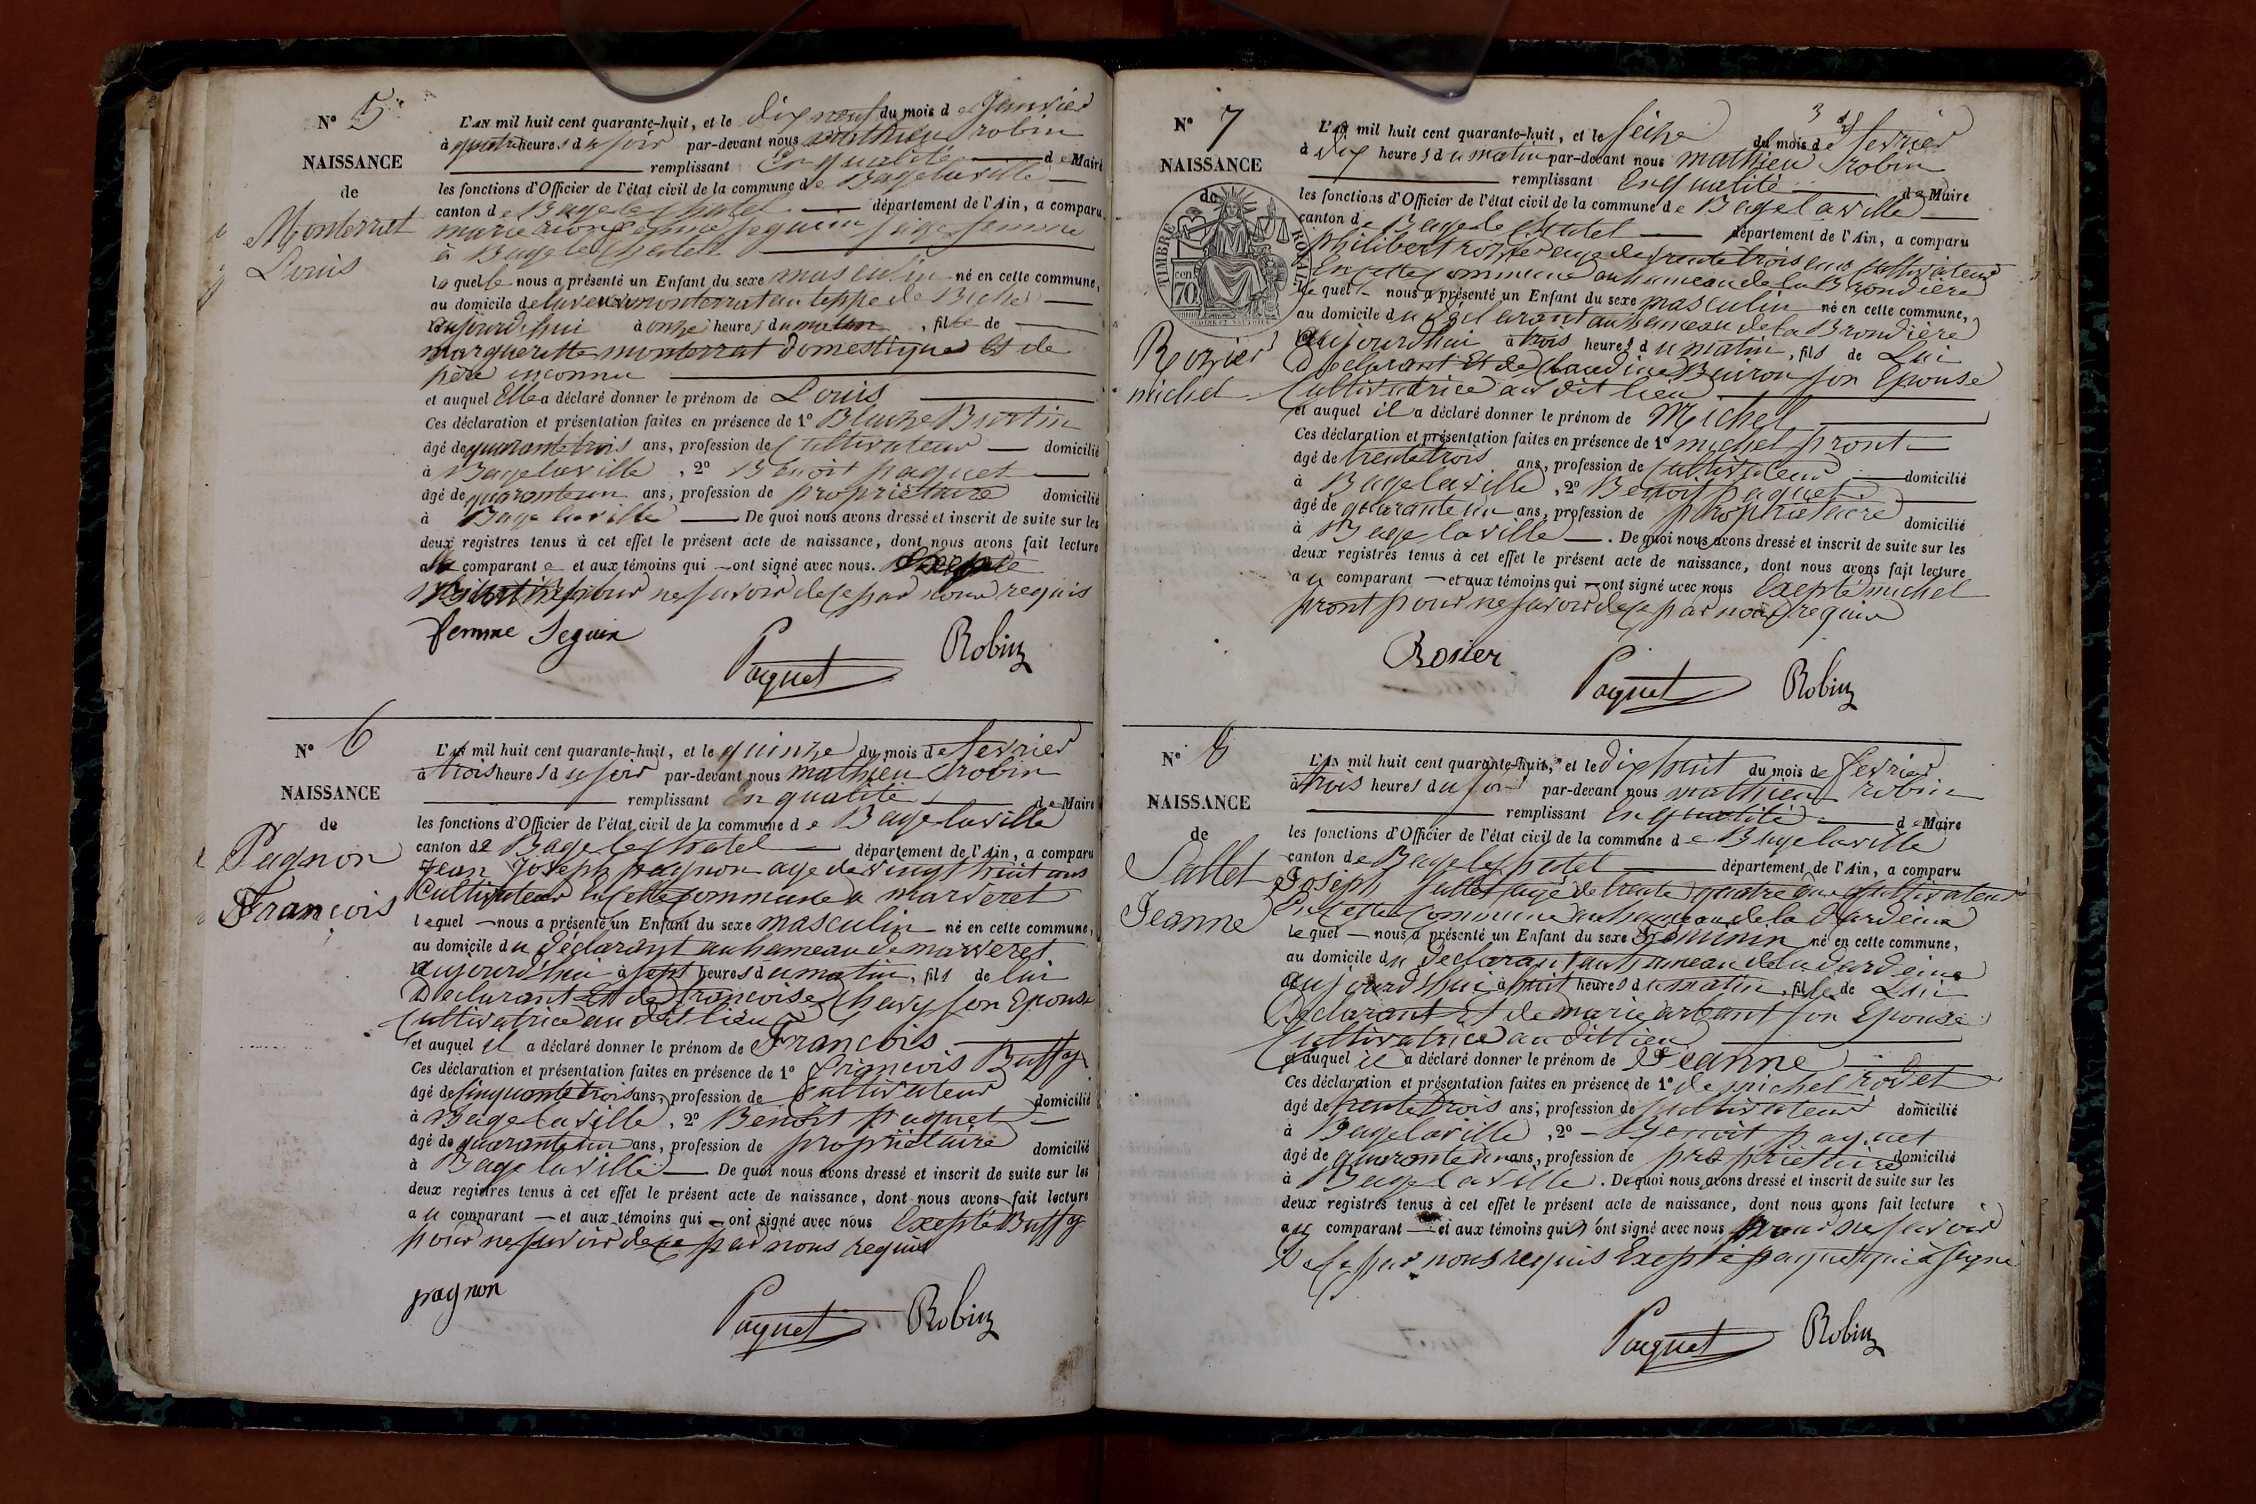 N° 5
NAISSANCE
de
Monterrat
Louis
L'AN mil huit cent quarante-huit, et le dix neuf du mois de Janvier
à quatre heures du soir par-devant nous mathieu robin
remplissant En qualité de Maire
les fonctions d'Officier de l'état civil de la commune de Bagelaville
canton de Bagelechatel département de l'Ain, a comparu
marie femme seguin sage femme
à Bagelechatel
laquelle nous a présenté un Enfant du sexe masculin né en cette commune,
au domicile de monterrat au teppe de Biche
aujourd'hui à onze heures du matin, fils de
margueritte monterrat domestique Et de
père inconnu
et auquel Elle a déclaré donner le prénom de Louis
Ces déclaration et présentation faites en présence de 1° Blaize Burtin
âgé de quarante trois ans, profession de Cultivateur domicilié
à Bagelaville, 2° Benoit paquet
âgé de quarante un ans, profession de propriétaire domicilié
à Bagelaville De quoi nous avons dressé et inscrit de suite sur les
deux registres tenus à cet effet le présent acte de naissance, dont nous avons fait lecture
à la comparante et aux témoins qui ont signé avec nous.
pour ne savoir dece par nous requis
femme Seguin
Paquet
Robin
N° 6
NAISSANCE
de
Pagnon
François
L'AN mil huit cent quarante-huit, et le quinze du mois de fevrier
à trois heures du soir par-devant nous mathieu robin
remplissant En qualité de Maire
les fonctions d'Officier de l'état civil de la commune de Bagelaville
canton de Bagelechatel département de l'Ain, a comparu
Jean Joseph pagnon age de vingt huit ans
Cultivateur En cette commune a marveret
lequel nous a présenté un Enfant du sexe masculin né en cette commune,
au domicile du déclarant au hameau de marveret
aujourd'hui à sept heures du matin, fils de lui
Declarant Et de francoise Chevy son Epouse
Cultivatrice au dit lieu
et auquel il a déclaré donner le prénom de François
Ces déclaration et présentation faites en présence de 1° François Buffy
âgé de cinquante trois ans, profession de Cultivateur domicilié
à Bagelaville, 2° Benoit paquet
âgé de quarante un ans, profession de propriétaire domicilié
à Bagelaville De quoi nous avons dressé et inscrit de suite sur les
deux registres tenus à cet effet le présent acte de naissance, dont nous avons fait lecture
au comparant et aux témoins qui ont signé avec nous Excepté Buffy
pour ne savoir dece par nous requis
pagnon
Paquet
Robin
N° 7
NAISSANCE
de
TIMBRE ROYALE
70 cen
Rozier
michel
L'AN mil huit cent quarante-huit, et le seize du mois de fevrier
à dix heures du matin par-devant nous mathieu robin
remplissant En qualité de Maire
les fonctions d'Officier de l'état civil de la commune de Bagelaville
canton de Bagelechatel département de l'Ain, a comparu
philibert rozier age de trente trois ans cultivateur
En cette commune au hameau de la Brondière
lequel nous a présenté un Enfant du sexe masculin né en cette commune,
au domicile du déclarant au hameau de la Brondière
aujourd'hui à trois heures du matin, fils de Lui
Declarant Et de Claudine son Epouse
Cultivatrice au dit lieu
et auquel il a déclaré donner le prénom de Michel
Ces déclaration et présentation faites en présence de 1° michel pront
âgé de trente trois ans, profession de cultivateur domicilié
à Bagelaville, 2° Benoit paquet
âgé de quarante un ans, profession de propriétaire domicilié
à Bagelaville. De quoi nous avons dressé et inscrit de suite sur les
deux registres tenus à cet effet le présent acte de naissance, dont nous avons fait lecture
au comparant et aux témoins qui ont signé avec nous Exepté michel
pront pour ne savoir dece par nous requis
Rosier
Paquet
Robin
N° 8
NAISSANCE
de
Sallet
Jeanne
L'AN mil huit cent quarante-huit, et le dix huit du mois de fevrier
à trois heures du soir par-devant nous mathieu robin
remplissant En qualité de Maire
les fonctions d'Officier de l'état civil de la commune de Bagelaville
canton de Bagelechatel département de l'Ain, a comparu
Joseph Sallet age de trente quatre ans cultivateur
En cette commune au hameau de la
lequel nous a présenté un Enfant du sexe Feminin né en cette commune,
au domicile du declarant au hameau de la
aujourd'hui à huit heures du matin, fille de Lui
Declarant Et de marie arbant son Epouse
Cultivatrice au dit lieu
et auquel il a déclaré donner le prénom de Jeanne
Ces déclaration et présentation faites en présence de 1° de michel rodet
âgé de trente trois ans, profession de cultivateur domicilié
à Bagelaville, 2° Benoit paquet
âgé de quarante un ans, profession de propriétaire domicilié
à Bagelaville. De quoi nous avons dressé et inscrit de suite sur les
deux registres tenus à cet effet le présent acte de naissance, dont nous avons fait lecture
au comparant et aux témoins qui n ont signé avec nous pour ne savoir
dece par nous requis Exepté paquet qui a signé
Paquet
Robin